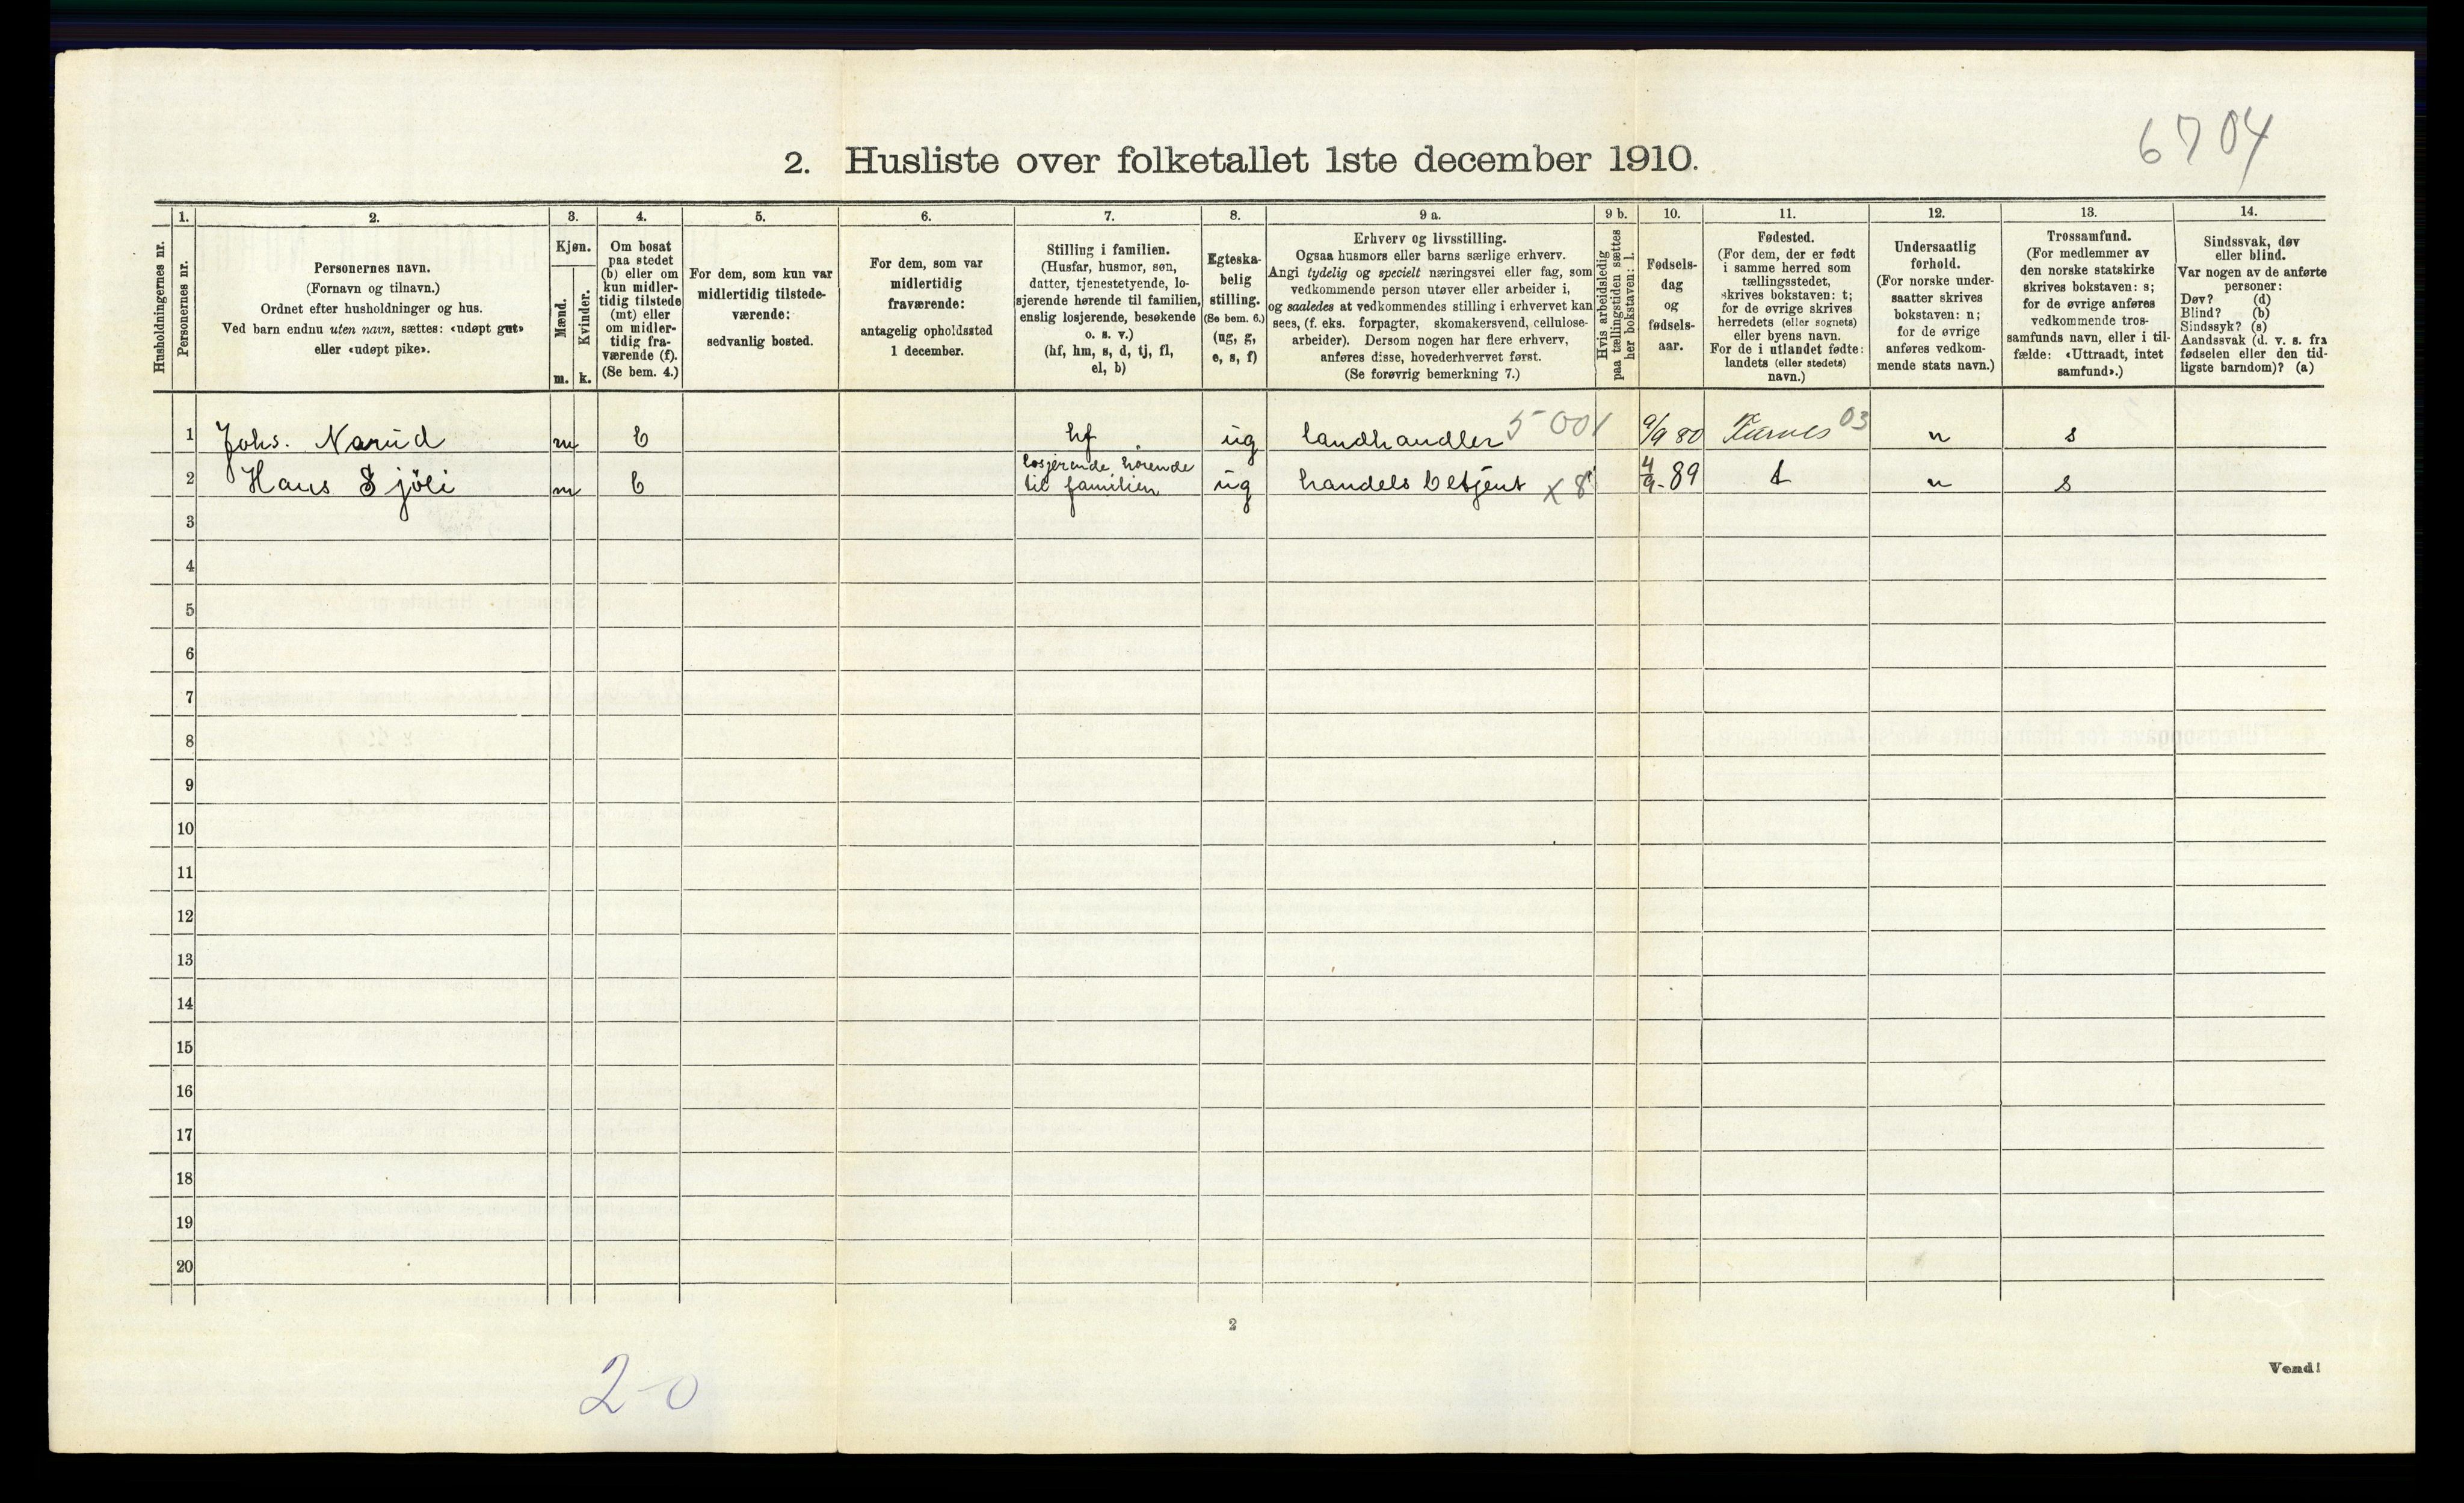 6704
2. Husliste over folketallet 1ste december 1910.
1. 2. 3. 4. 5. 6. 7. 8. 9 a. 9 b. 10. 11. 12. 13. 14.
Husholdningernes nr.
Personernes nr.
Personernes navn.
(Fornavn og tilnavn.)
Ordnet efter husholdninger og hus.
Ved barn endnu uten navn, sættes: «udøpt gut»
eller «udøpt pike».
Kjøn.
Mænd.
Kvinder.
m. k.
Om bosat
paa stedet
(b) eller om
kun midler-
tidig tilstede
(mt) eller
om midler-
tidig fra-
værende (f).
(Se bem. 4.)
For dem, som kun var
midlertidig tilstede-
værende:
sedvanlig bosted.
For dem, som var
midlertidig
fraværende:
antagelig opholdssted
1 december.
Stilling i familien.
(Husfar, husmor, søn,
datter, tjenestetyende, lo-
sjerende hørende til familien,
enslig losjerende, besøkende
o. s. v.)
(hf, hm, s, d, tj, fl,
el, b)
Egteska-
belig
stilling.
(Se bem. 6.)
(ug, g,
e, s, f)
Erhverv og livsstilling.
Ogsaa husmors eller barns særlige erhverv.
Angi tydelig og specielt næringsvei eller fag, som
vedkommende person utøver eller arbeider i,
og saaledes at vedkommendes stilling i erhvervet kan
sees, (f. eks. forpagter, skomakersvend, cellulose-
arbeider). Dersom nogen har flere erhverv,
anføres disse, hovederhvervet først.
(Se forøvrig bemerkning 7.)
Hvis arbeidsledig
paa tællingstiden sættes
her bokstaven: l.
Fødsels-
dag
og
fødsels-
aar.
Fødested.
(For dem, der er født
i samme herred som
tællingsstedet,
skrives bokstaven: t;
for de øvrige skrives
herredets (eller sognets)
eller byens navn.
For de i utlandet fødte:
landets (eller stedets)
navn.)
Undersaatlig
forhold.
(For norske under-
saatter skrives
bokstaven: n;
for de øvrige
anføres vedkom-
mende stats navn.)
Trossamfund.
(For medlemmer av
den norske statskirke
skrives bokstaven: s;
for de øvrige anføres
vedkommende tros-
samfunds navn, eller i til-
fælde: «Uttraadt, intet
samfund».)
Sindssvak, døv
eller blind.
Var nogen av de anførte
personer:
Døv? (d)
Blind? (b)
Sindssyk? (s)
Aandssvak (d. v. s. fra
fødselen eller den tid-
ligste barndom)? (a)
1 Johs. Narud m b hf ug landhandler 5001 9/9 80 03 n s
2 Hans Sjöli m b losjerende hörende
til familien ug handelsbetjent x 8 4/9-89 t n s
3
4
5
6
7
8
9
10
11
12
13
14
15
16
17
18
19
20
2
Vend!
2-0